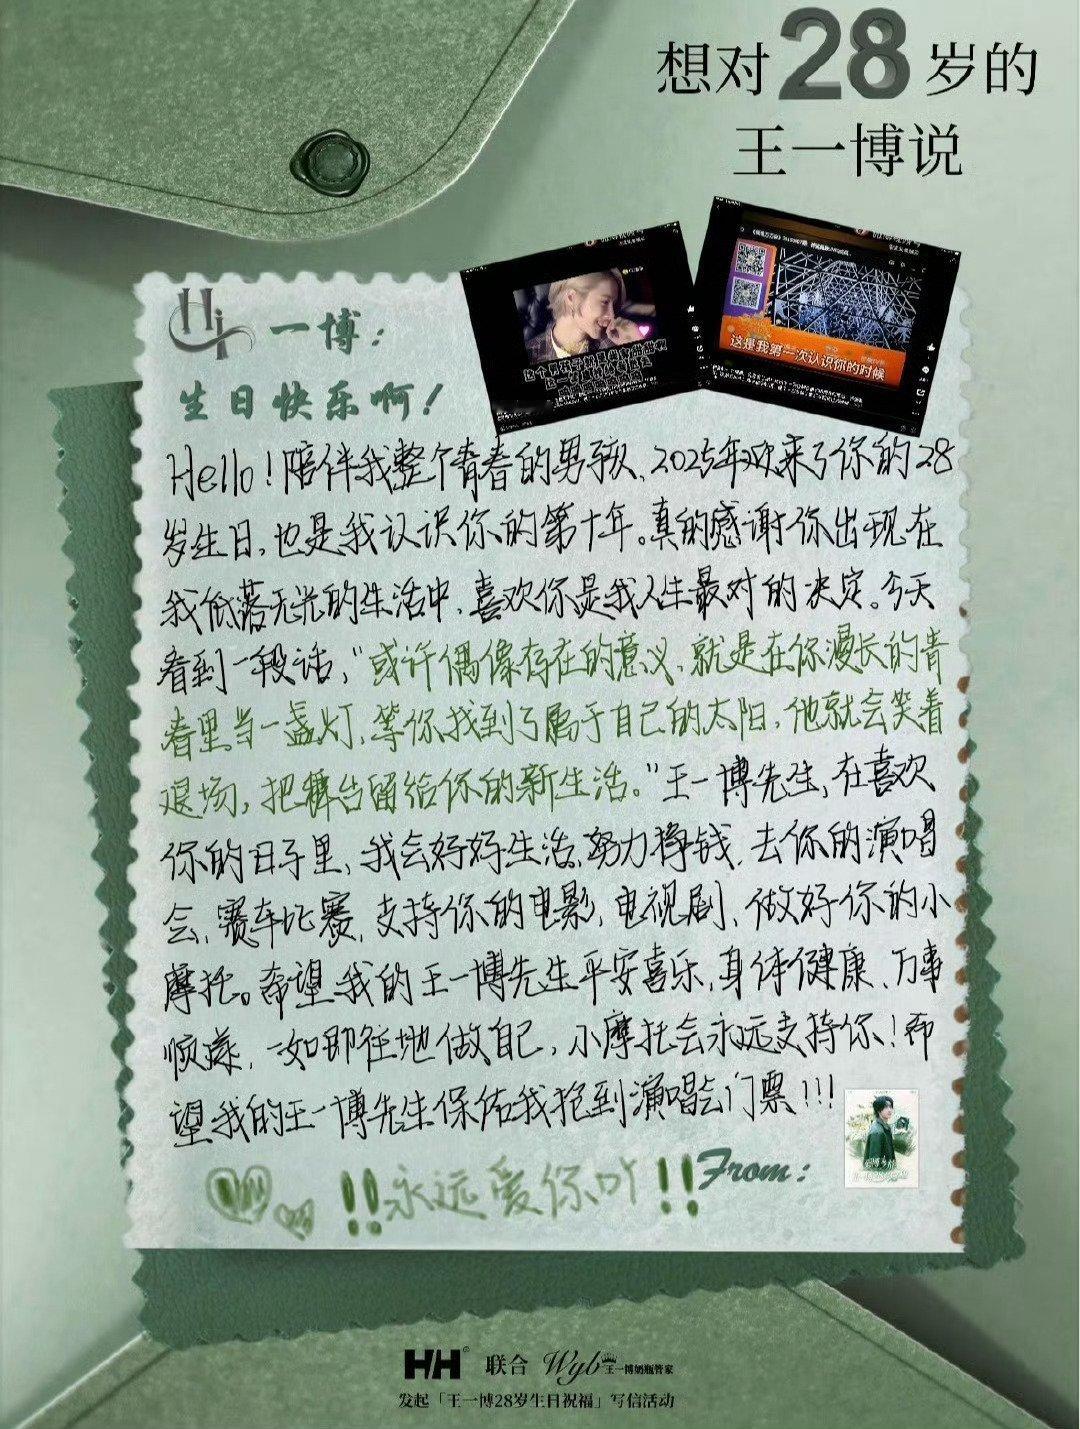 想对28岁的
王一博说
这是我第一次认识你的时候
Hi 一博：
生日快乐啊！
Hello！陪伴我整个青春的男孩、2025年欢来了你的28
岁生日，也是我认识你的第十年。真的感谢你出现在
我低落无光的生活中，喜欢你是我人生最对的决定。今天
看到一段话，“或许偶像存在的意义，就是在你漫长的青
春里当一盏灯，等你找到了属于自己的太阳，他就会笑着
退场，把舞台留给你的新生活。”王一博先生，在喜欢
你的日子里，我会好好生活，努力挣钱，去你的演唱
会，赛车比赛，支持你的电影，电视剧，做好你的小
摩托。希望我的王一博先生平安喜乐，身体健康、万事
顺遂，一如即往地做自己，小摩托会永远支持你！希
望我的王一博先生保佑我抢到演唱会门票！！！
！！永远爱你吖！！
From：
HH® 联合 Wyb王一博奶瓶管家
发起「王一博28岁生日祝福」写信活动